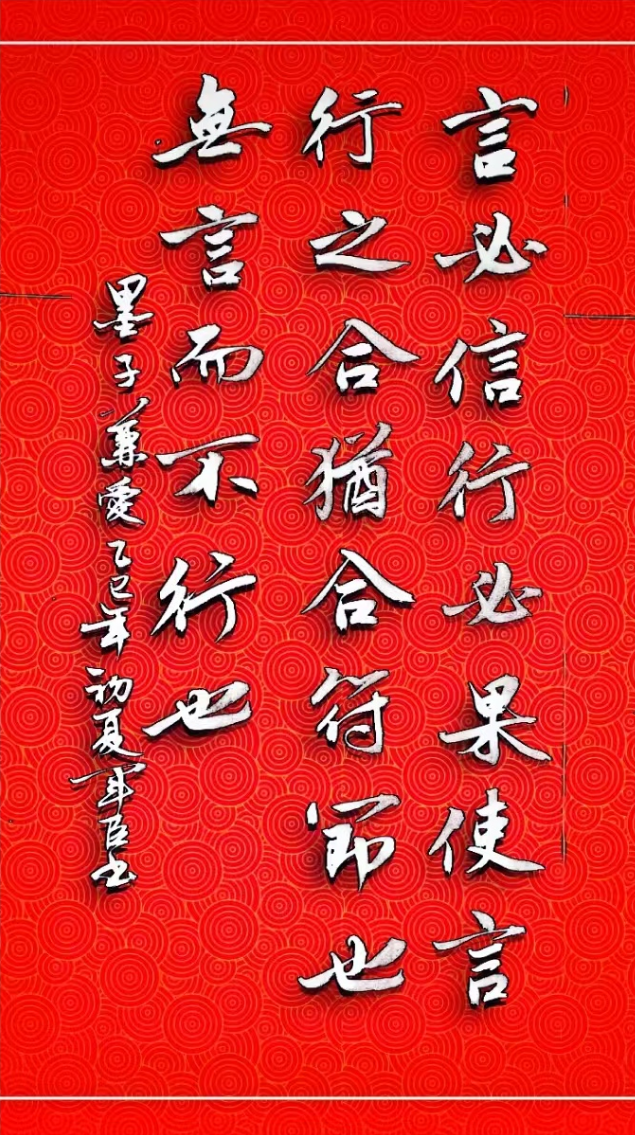 言必信行必果使言
行之合猶合符節也
無言而不行也
墨子兼愛乙巳年初夏軍臣書